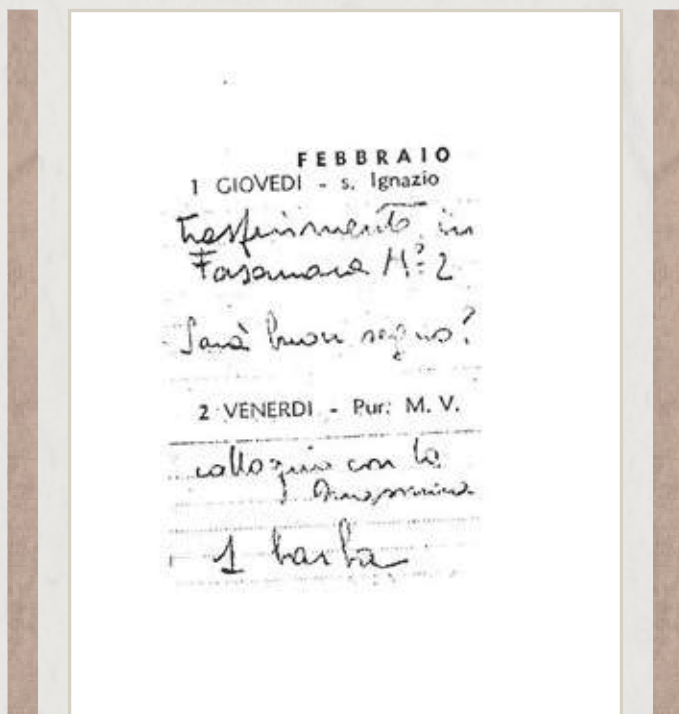 FEBBRAIO
1 GIOVEDI - s. Ignazio
trasferimento in
Fasanara N° 2
Sarà buon segno?
2 VENERDI - Pur: M. V.
colloquio con la
1 barba